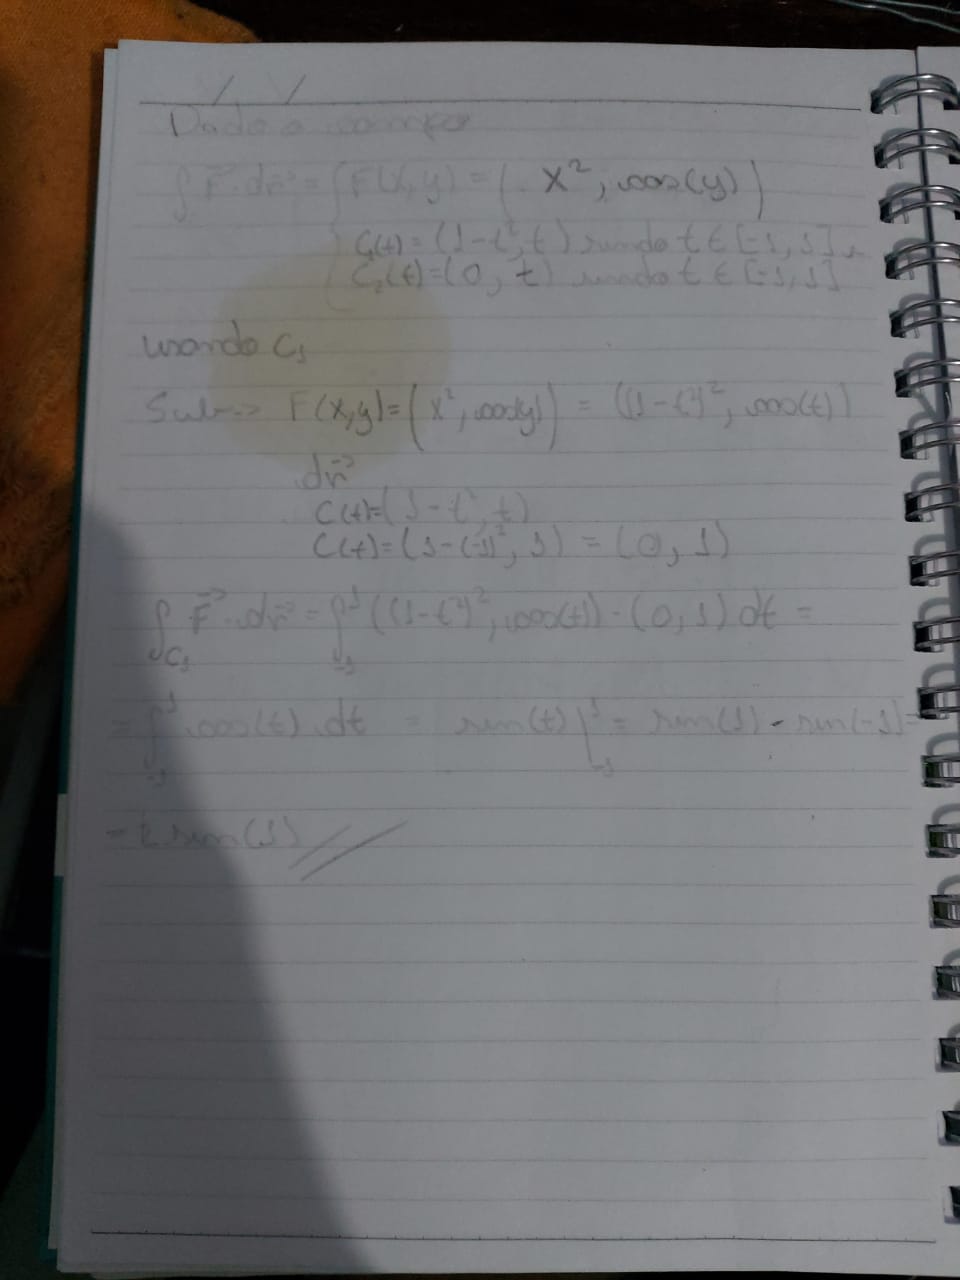 Dado o campo
∫ F⃗·dr⃗ = { F(x,y) = ( x², cos(y) )
C₁(t) = (1-t², t) sendo t ∈ [-1, 1] e
C₂(t) = (0, t) sendo t ∈ [-1, 1]
usando C₁
Sub-> F(x,y) = (x², cos(y)) = ((1-t²)², cos(t))
dr⃗
C(t) = (1-t², t)
C(t) = (1-(-1)², 1) = (0, 1)
∫_C₁ F⃗·dr⃗ = ∫₋₁¹ ((1-t²)², cos(t)) · (0, 1) dt =
= ∫₋₁¹ cos(t) dt = sin(t) |₋₁¹ = sin(1) - sin(-1) =
= 2 sin(1) //